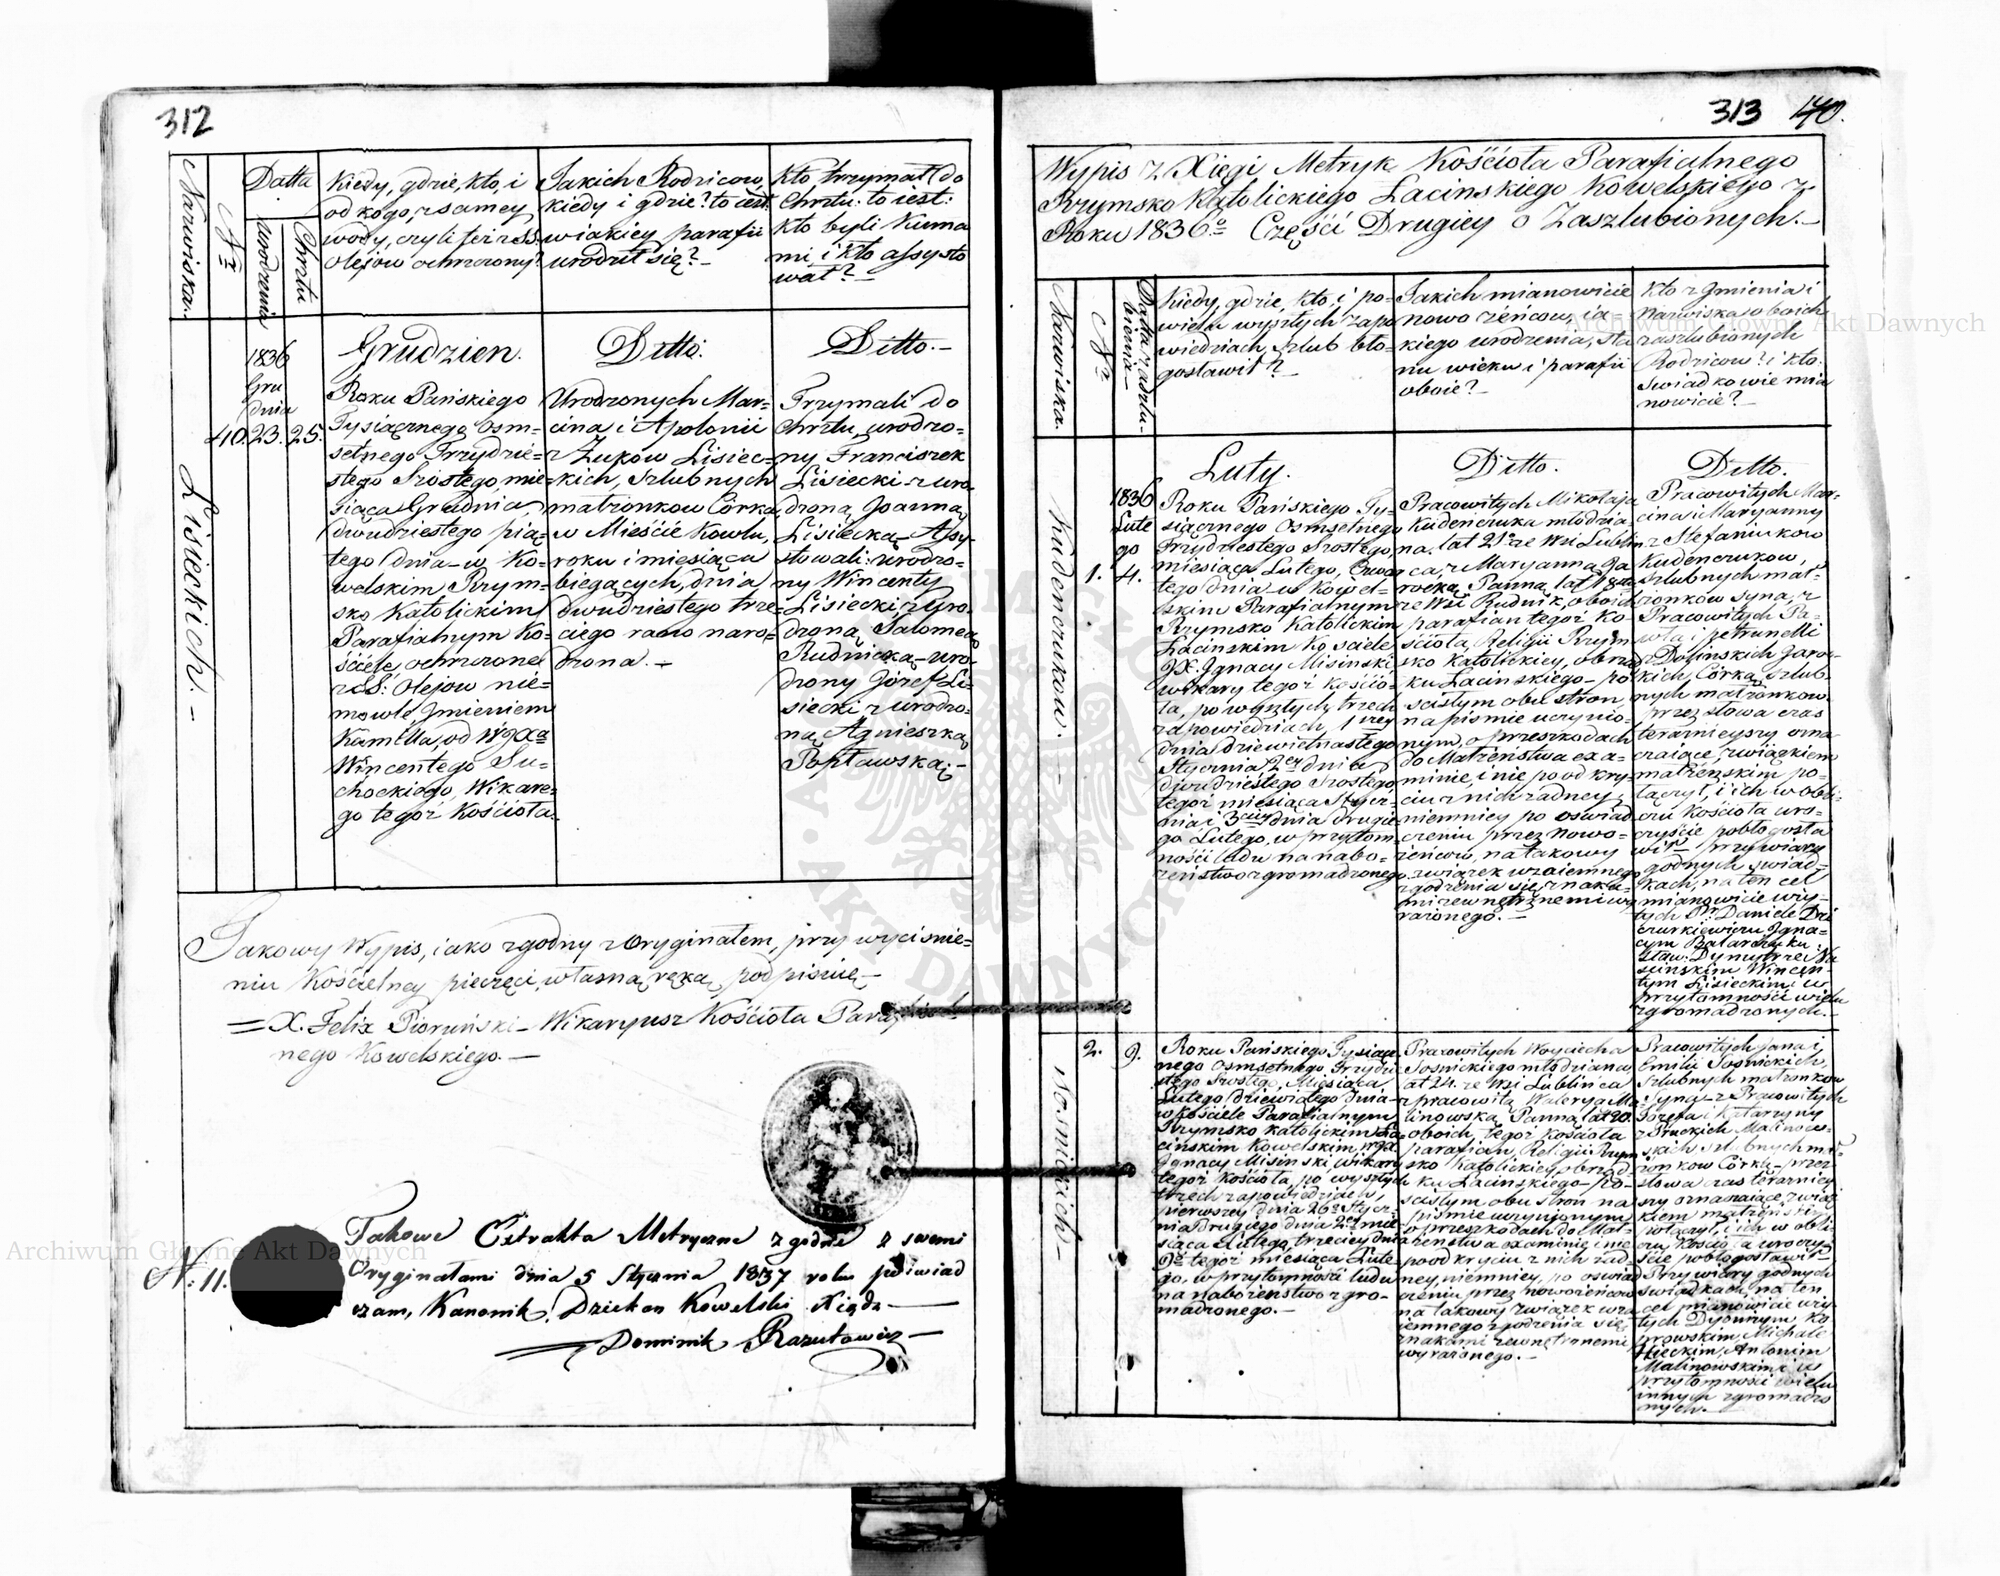 312
Nazwiska.
Nr
Datta
urodzenia
Chrztu
Kiedy, gdzie, kto, i
od kogo, z samey
wody, czyli też z SS.
olejow ochrzczony?
Jakich Rodzicow,
kiedy i gdzie? to iest:
w iakiey parafii
urodził się? –
Kto trzymał do
Chrztu: to iest:
kto byli Kuma
mi, i kto assysto
wał? –
Lisieckich. –
40.
1836
Gru
dnia
23.
25.
Grudzien.
Roku Pańskiego
Tysiącznego Osm-
setnego Trzydzie-
stego Szóstego, mie-
siąca Grudnia,
dwudziestego pią-
tego dnia – w Ko-
welskim Rzym-
sko Katolickim
Parafialnym Ko-
ściele, ochrzczone
z SS: Olejow nie-
mowle, Jmieniem
Kamilla, od WJXa
Wincentego Su-
chockiego, Wikare-
go tegoż Kościoła.
Ditto.
Urodzonych Mar-
cina i Apolonii
z Zuków Lisiec-
kich, szlubnych
małżonkow Córka
w Mieście Kowlu,
roku i miesiąca
biegących, dnia
dwudziestego trze-
ciego rano naro-
dzona. –
Ditto. –
Trzymali do
Chrztu, urodzo-
ny Franciszek
Lisiecki z uro-
dzoną Joanną
Lisiecką – Assy-
stowali: urodzo-
ny Wincenty
Lisiecki z Uro-
dzoną Salomeą
Rudnicką – uro-
dzony Józef Li-
siecki z urodzo-
ną Agnieszką
Popławską. –
Jakowy Wypis, iako zgodny z Oryginałem, przy wyciśnie-
niu Kościelney pieczęci, własną ręką podpisuię –
= X. Felix Pioruński – Wikaryusz Kościoła Parafial-
nego Kowelskiego. –
N. 11.
Takowe Extrakta Metryczne zgodne z swemi
Oryginałami dnia 5 Stycznia 1837 roku poświad
czam, Kanonik, Dziekan Kowelski Xiądz –
Dominik Razutowicz –
313 140.
Wypis z Xięgi Metryk Kościoła Parafialnego
Rzymsko Katolickiego Łacinskiego Kowelskiego z
Roku 1836o Części Drugiey o Zaszlubionych. –
Nazwiska.
Nr
Datta zaszlu-
bienia –
Kiedy, gdzie, kto, i po
wielu wyszłych zapo
wiedziach, szlub bło-
gosławił? –
Jakich mianowicie
nowożeńcow, ia-
kiego urodzenia, sta
nu wieku i parafii
oboie? –
Kto z Jmienia i
Nazwiska oboich
zaszlubionych
Rodzicow? i kto
swiadkowie mia
nowicie? –
Kudenczukow. –
1.
1836
Lute
go
4.
Luty.
Roku Pańskiego Ty-
siącznego Osmsetnego
Trzydziestego Szostego,
miesiąca Lutego, Czwar
tego dnia – w Kowel-
skim Parafialnym
Rzymsko Katolickim
Łacinskim Kościele
JX. Ignacy Misinski,
wikary tegoż Kościo-
ła, po wyszłych trzech
zapowiedziach, 1szey
dnia dziewietnastego
Stycznia 2ey dnia
dwudziestego Szostego
tegoż miesiąca Stycz-
nia i 3ciey dnia drugie
go Lutego, w przytom-
ności ludu na nabo-
żeństwo zgromadzonego
Ditto.
Pracowitych Mikołaja
Kudenczuka młodzia
na, lat 21 ze Wsi Lublin
ca, z Maryanną Ja
rocką Panną, lat 18
ze Wsi Rudnik, oboich
parafian tegoż Ko-
ścioła, Religii Rzym
sko Katolickiey, obrząd
ku Łacinskiego – po
ścisłym obu stron,
na pismie uczynio-
nym, o przeszkodach
do Małżeństwa exa-
minie, i nie po od kry-
ciu z nich żadney,
niemniey po oswiad
czeniu przez nowo-
żeńców, na takowy
związek wzaiemnego
zgodzenia się, znaka-
mi zewnętrznemi wy
rażonego. –
Ditto.
Pracowitych Mar-
cina i Maryanny
z Stefaniukow
Kudenczukow,
szlubnych mał-
żonków Syna, z
Pracowitych Pa-
wła i Petrunelli
z Dolinskich Jaroc-
kich, Córką, szlub-
nych małżonkow
przez słowa czas
teraznieyszy ozna
czaiące, związkiem
małżenskim po-
łączył, i ich w obli-
czu Kościoła uro-
czyście pobłogosła
wił – przy wiary
godnych swiad-
kach, na ten cel
mianowicie wzy-
tych Pr. Daniele
Igna-
cym
Dymytrze
Wincen-
tym Lisieckim w
przytomności wielu
zgromadzonych. –
Sosnickich –
2.
9.
Roku Pańskiego Tysiącz
nego Osmsetnego Trzydzie
stego Szostego, Miesiąca
Lutego dziewiątego dnia –
w Kościele Parafialnym
Rzymsko Katolickim Ła-
cinskim Kowelskim WJX
Ignacy Misinski, wikary
tegoż Kościoła, po wyszłych
trzech zapowiedziach,
pierwszey dnia 26o Stycz-
nia Drugiey dnia 2o mie-
siąca Lutego, trzeciey dnia
9o tegoż miesiąca Lute
go, w przytomności ludu
na nabożenstwo zgro-
madzonego. –
Pracowitych Woyciecha
Sosnickiego młodziana,
lat 24. ze Wsi Lublińca
z pracowitą Waleryą Ma
linowską Panną lat 20.
oboich, tegoż Kościoła
parafian, Religii Rzym
sko Katolickiey obrząd
ku Łacinskiego – po-
ścisłym obu stron na
pismie uczynionym,
o przeszkodach do Mał-
żenstwa examinie, i nie
po od kryciu z nich żad-
ney, niemniey, po oswiad
czeniu przez nowożencow
na takowy związek wza
iemnego zgodzenia się
znakami zewnętrznemi
wyrażonego. –
Pracowitych Jana i
Emilii Sosnickich,
szlubnych małżonkow
Syna – z Pracowitych
Jozefa i Katarzyny
z Pruckich Malinows-
skich szlubnych mał-
żonkow Córką – przez
słowa czas teraznie
szy oznaczaiące, związ
kiem małżeńskim
połączył, i ich w obli-
czu Kościoła uroczy-
ście pobłogosławił –
Przy wiary godnych
świadkach, na ten
cel mianowicie wzy-
tych
Michale
Antonim
Malinowskim, w
przytomności wielu
innych zgromadzo
nych. –
Archiwum Główne Akt Dawnych
Archiwum Główne Akt Dawnych